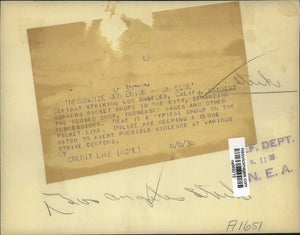 "RECOGNIZE OUR UNION -- OR ELSE"
DEFIANT STRIKING LOS ANGELES, CALIF.,
WORKERS PICKET SHOPS IN THE CITY, DEMANDING
THE CLOSED SHOP, INCREASED WAGES AND OTHER
CONCESSIONS. HERE IS A TYPICAL GROUP ON THE
PICKET LINE. POLICE ARE KEEPING A CLOSE
WATCH TO AVERT POSSIBLE VIOLENCE AT VARIOUS
STRIKE CENTERS.
CREDIT LINE (ACME)
REF. DEPT.
N. E. A.
Los Angeles
A1651